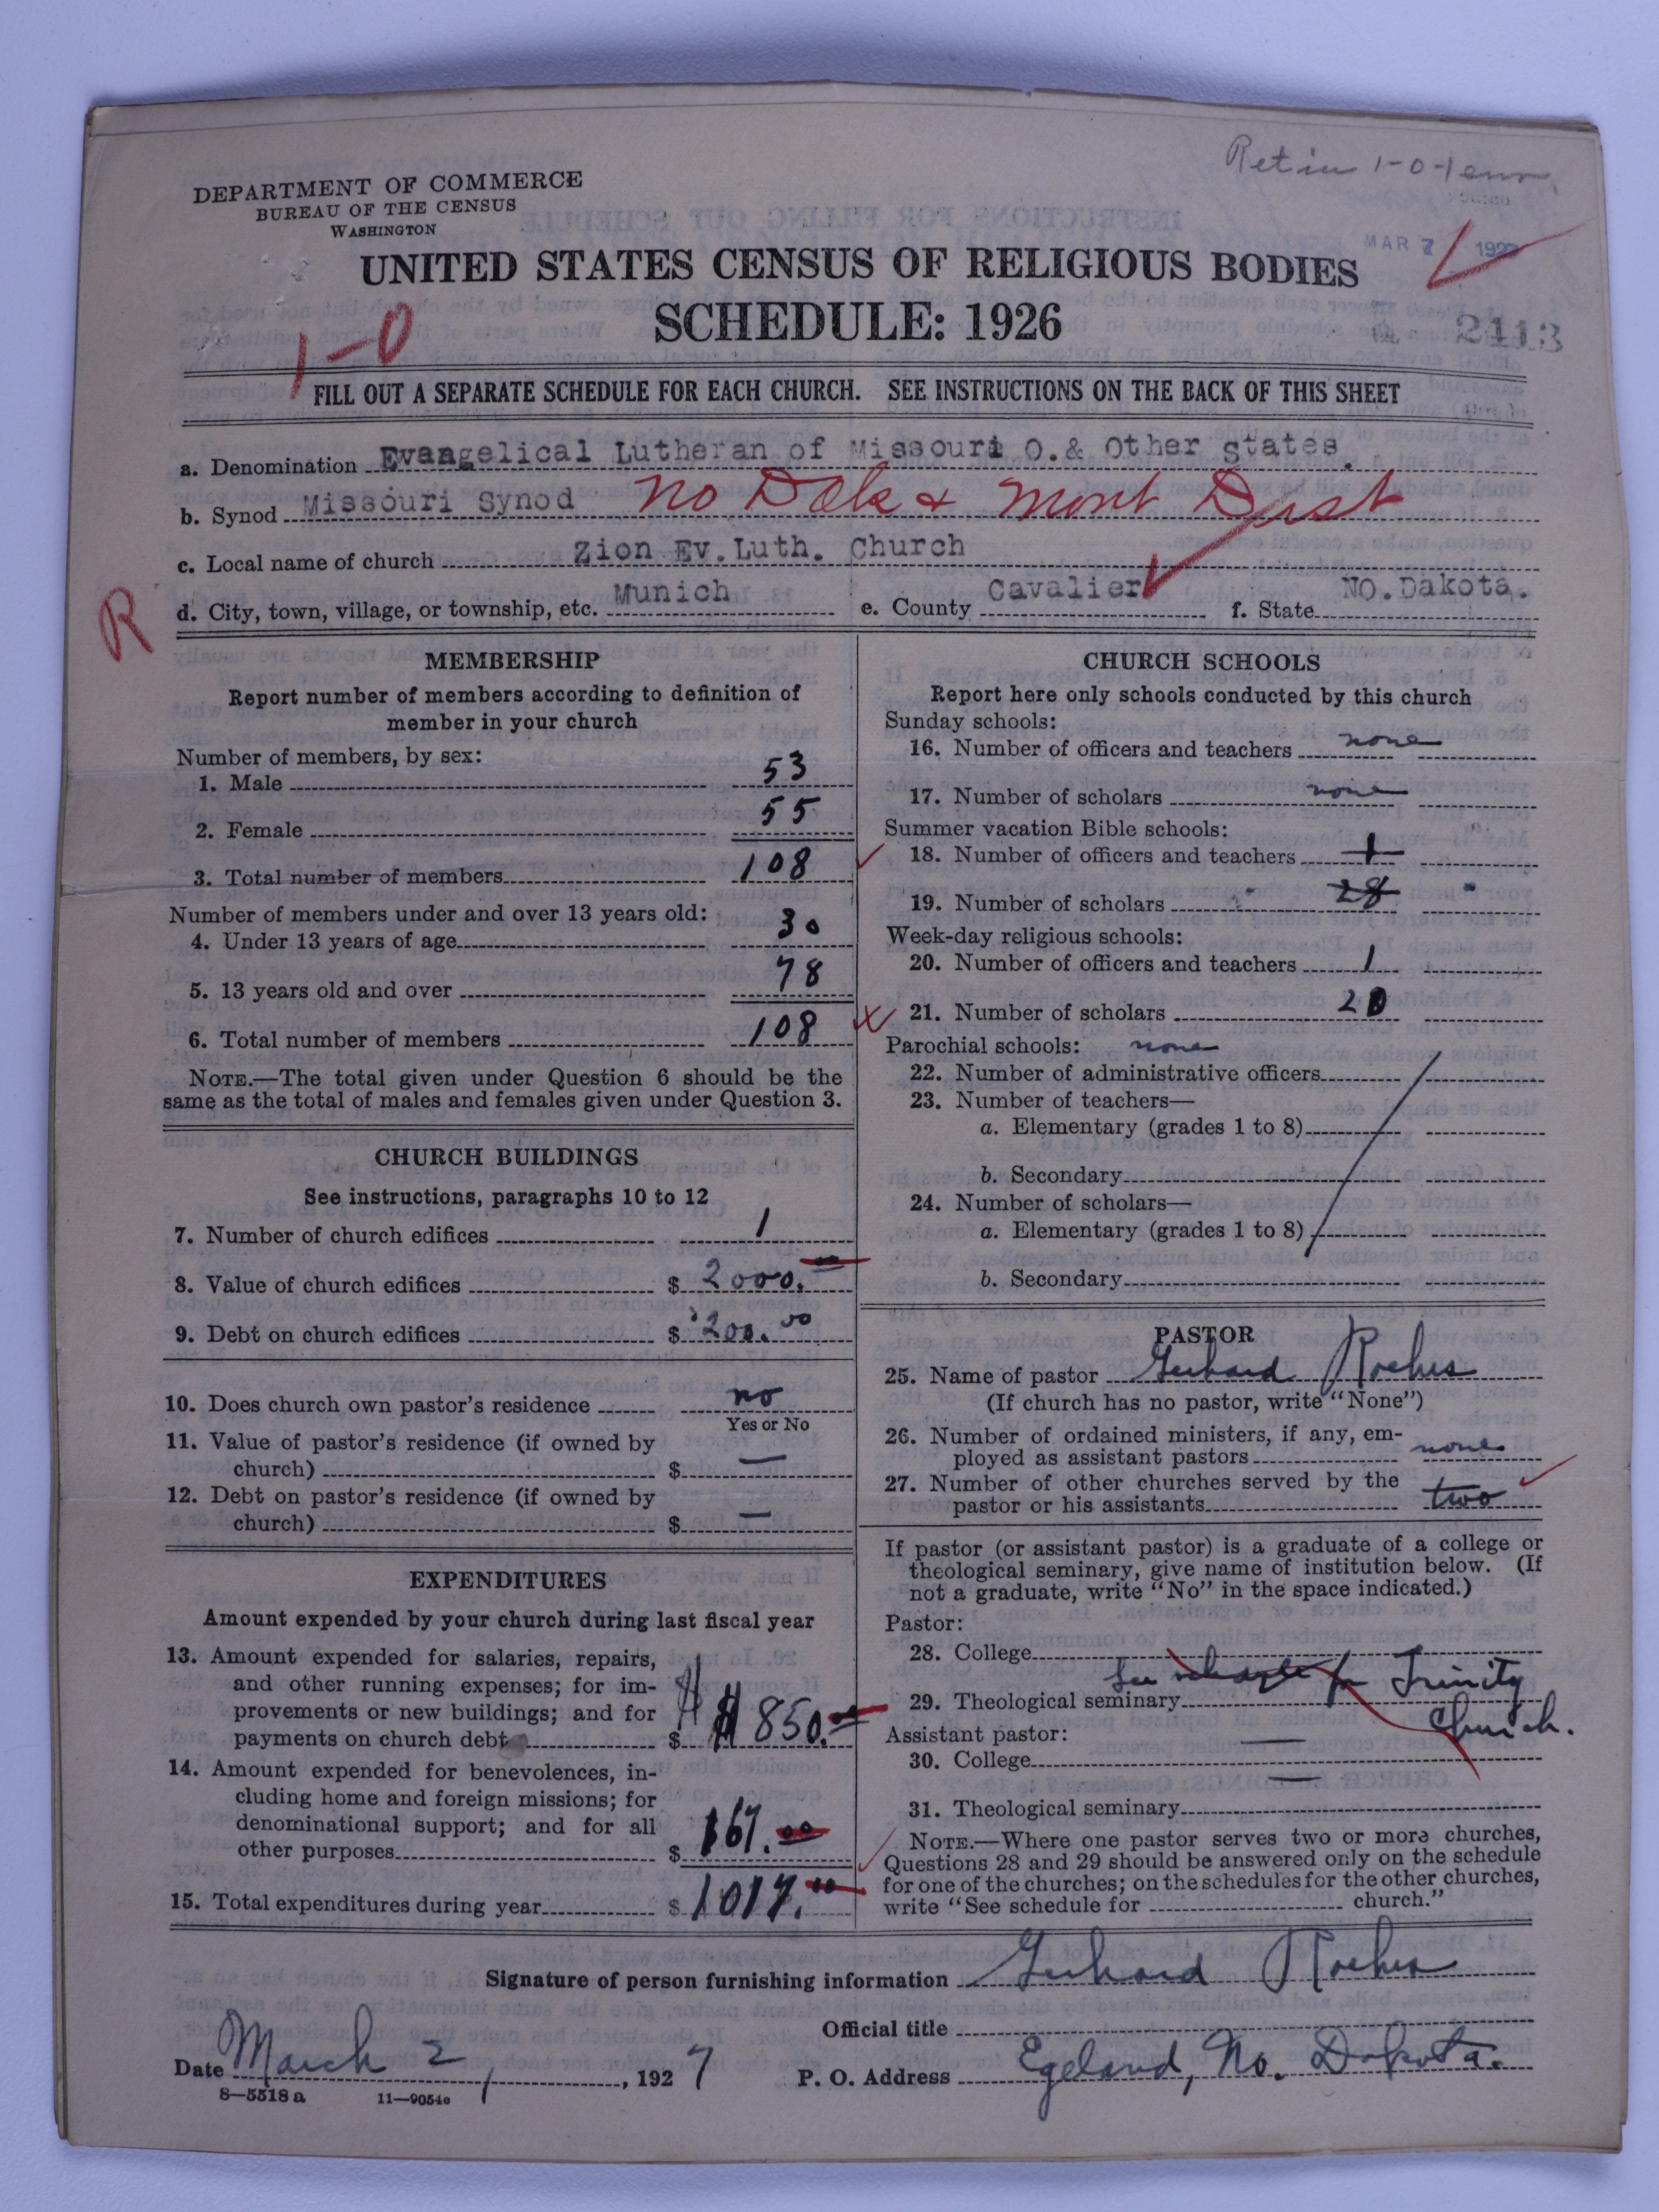 Retin 1-0-1
DEPARTMENT OF COMMERCE
BUREAU OF THE CENSUS
WASHINGTON
MAR 7 1927
UNITED STATES CENSUS OF RELIGIOUS BODIES
SCHEDULE: 1926
1-0
2413
FILL OUT A SEPARATE SCHEDULE FOR EACH CHURCH. SEE INSTRUCTIONS ON THE BACK OF THIS SHEET
a. Denomination Evangelical Lutheran of Missouri O.& Other States.
b. Synod Missouri Synod No Dak & Mont Dist
c. Local name of church Zion Ev.Luth. Church
R
d. City, town, village, or township, etc. Munich e. County Cavalier f. State NO.Dakota.
MEMBERSHIP
Report number of members according to definition of
member in your church
Number of members, by sex:
1. Male 53
2. Female 55
3. Total number of members 108
Number of members under and over 13 years old:
4. Under 13 years of age 30
5. 13 years old and over 78
6. Total number of members 108
NOTE.—The total given under Question 6 should be the
same as the total of males and females given under Question 3.
CHURCH BUILDINGS
See instructions, paragraphs 10 to 12
7. Number of church edifices 1
8. Value of church edifices $ 2000.00
9. Debt on church edifices $ 200.00
10. Does church own pastor's residence no
Yes or No
11. Value of pastor's residence (if owned by
church) $ —
12. Debt on pastor's residence (if owned by
church) $ —
EXPENDITURES
Amount expended by your church during last fiscal year
13. Amount expended for salaries, repairs,
and other running expenses; for im-
provements or new buildings; and for
payments on church debt $ $850.00
14. Amount expended for benevolences, in-
cluding home and foreign missions; for
denominational support; and for all
other purposes $ 167.00
15. Total expenditures during year $ 1017.00
CHURCH SCHOOLS
Report here only schools conducted by this church
Sunday schools:
16. Number of officers and teachers none
17. Number of scholars none
Summer vacation Bible schools:
18. Number of officers and teachers 1
19. Number of scholars 28
Week-day religious schools:
20. Number of officers and teachers 1
21. Number of scholars 20
Parochial schools: none
22. Number of administrative officers
23. Number of teachers—
a. Elementary (grades 1 to 8)
b. Secondary
24. Number of scholars—
a. Elementary (grades 1 to 8)
b. Secondary
PASTOR
25. Name of pastor Gerhard Roehrs
(If church has no pastor, write "None")
26. Number of ordained ministers, if any, em-
ployed as assistant pastors none
27. Number of other churches served by the
pastor or his assistants two
If pastor (or assistant pastor) is a graduate of a college or
theological seminary, give name of institution below. (If
not a graduate, write "No" in the space indicated.)
Pastor:
28. College
See schedule for Trinity
29. Theological seminary
Church.
Assistant pastor:
30. College —
31. Theological seminary —
NOTE.—Where one pastor serves two or more churches,
Questions 28 and 29 should be answered only on the schedule
for one of the churches; on the schedules for the other churches,
write "See schedule for church."
Signature of person furnishing information Gerhard Roehrs
Official title
Date March 2, 1927 P. O. Address Egeland, No. Dakota.
8—5518 a 11—9054c